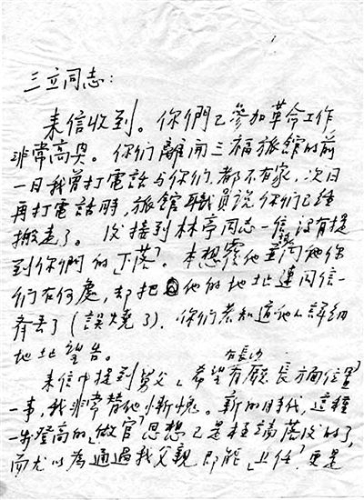 三立同志：
来信收到。你們已參加革命工作
非常高兴。你们離開三福旅館的前
一日我曾打電話与你们，都不在家，次日
再打電話時，旅館職員說你们已經
搬走了。後接到林亭同志一信，没有提
到你們的「下落」。本想覆他並问他你
们在何處，却把他的地址連同信一
齊丢了（誤燒了）。你們若知道他的詳細
地址望告。
来信中提到舅父「希望在長沙有厰長方面位置」
一事，我非常替他慚愧。新的時代，這種
一步登高的「做官」思想已是極端落後的了，
而尤以為通過我父親即能「上任」，更是